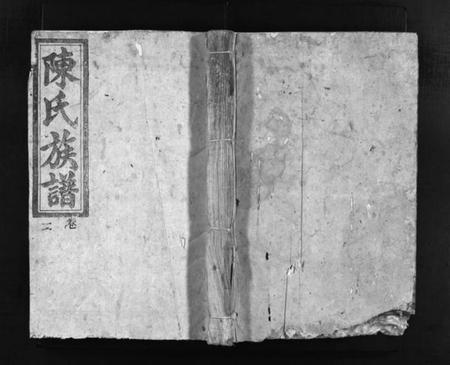 陳氏族譜
卷二